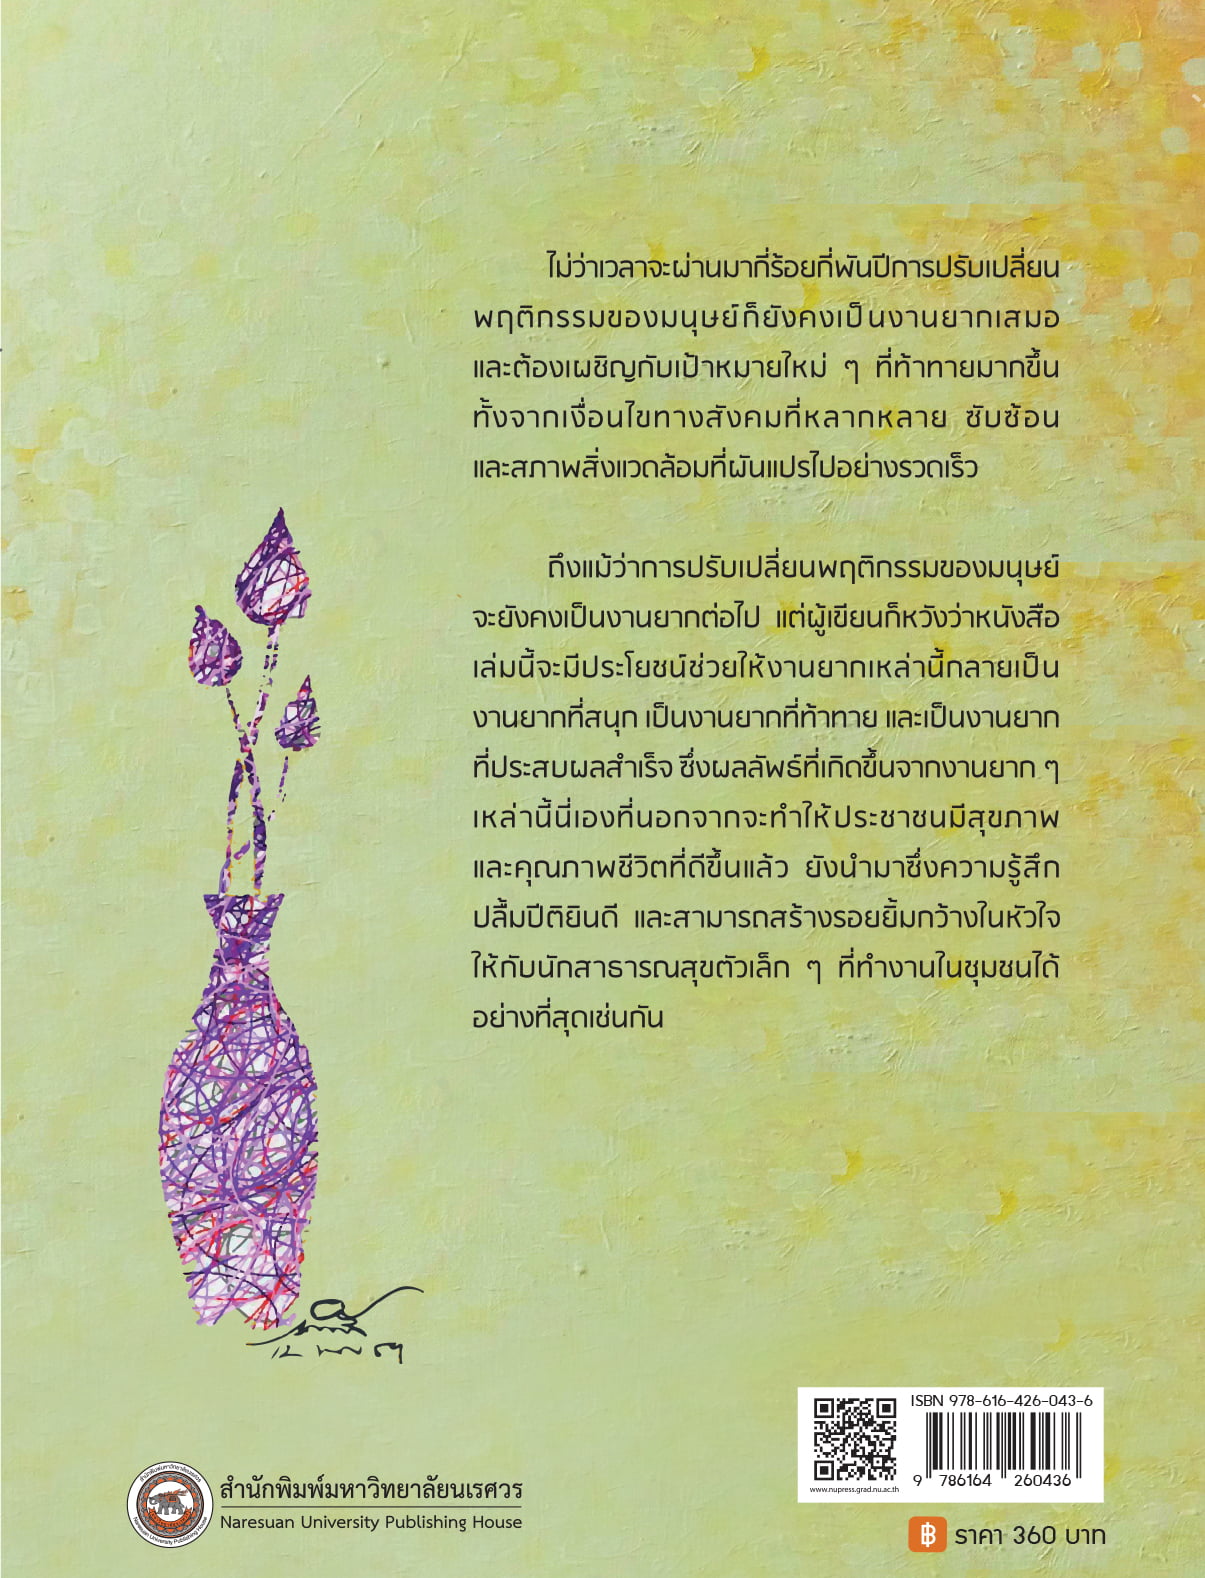 ไม่ว่าเวลาจะผ่านมากี่ร้อยกี่พันปีการปรับเปลี่ยน
พฤติกรรมของมนุษย์ก็ยังคงเป็นงานยากเสมอ
และต้องเผชิญกับเป้าหมายใหม่ ๆ ที่ท้าทายมากขึ้น
ทั้งจากเงื่อนไขทางสังคมที่หลากหลาย ซับซ้อน
และสภาพสิ่งแวดล้อมที่ผันแปรไปอย่างรวดเร็ว
ถึงแม้ว่าการปรับเปลี่ยนพฤติกรรมของมนุษย์
จะยังคงเป็นงานยากต่อไป แต่ผู้เขียนก็หวังว่าหนังสือ
เล่มนี้จะมีประโยชน์ช่วยให้งานยากเหล่านี้กลายเป็น
งานยากที่สนุก เป็นงานยากที่ท้าทาย และเป็นงานยาก
ที่ประสบผลสำเร็จ ซึ่งผลลัพธ์ที่เกิดขึ้นจากงานยาก ๆ
เหล่านี้นี่เองที่นอกจากจะทำให้ประชาชนมีสุขภาพ
และคุณภาพชีวิตที่ดีขึ้นแล้ว ยังนำมาซึ่งความรู้สึก
ปลื้มปีติยินดี และสามารถสร้างรอยยิ้มกว้างในหัวใจ
ให้กับนักสาธารณสุขตัวเล็ก ๆ ที่ทำงานในชุมชนได้
อย่างที่สุดเช่นกัน
ISBN 978-616-426-043-6
9 786164 260436
www.nupress.grad.nu.ac.th
สำนักพิมพ์มหาวิทยาลัยนเรศวร
Naresuan University Publishing House
สำนักพิมพ์มหาวิทยาลัยนเรศวร
Naresuan University Publishing House
฿ ราคา 360 บาท